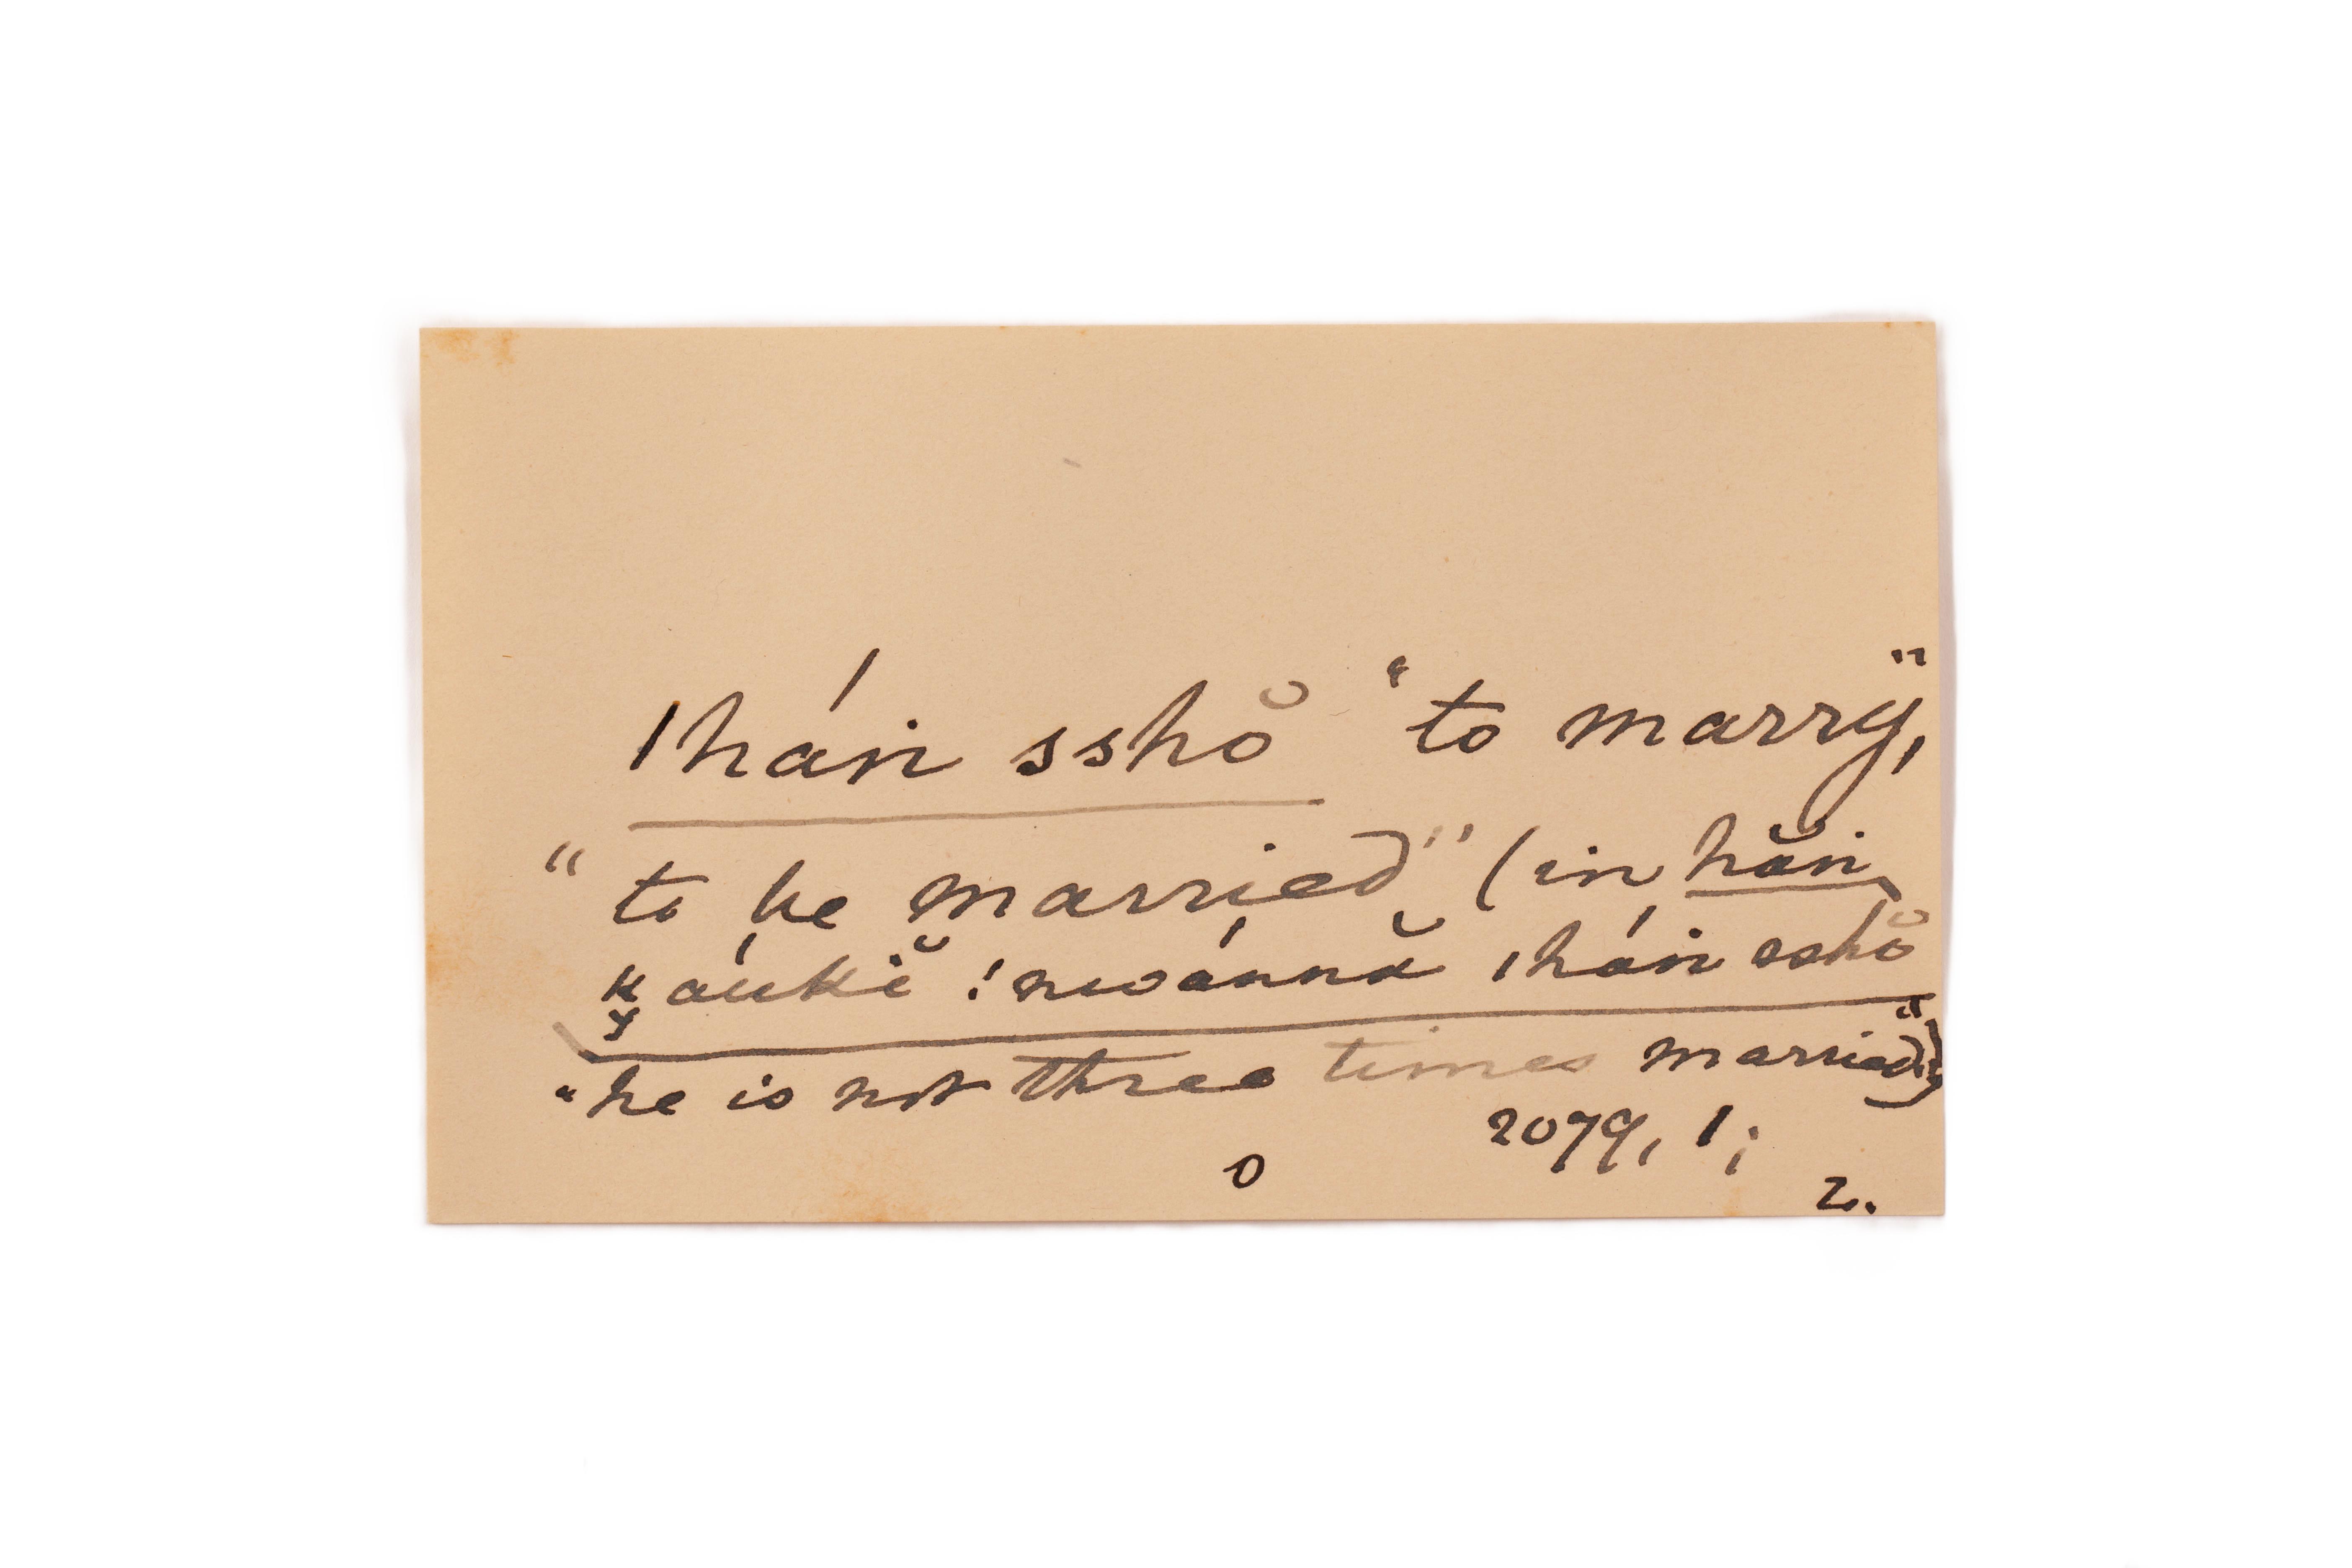 ǀhán sshŏ "to marry,"
"to be married" (in hăn
ḵauki ǃnwánnă ǀhán sshŏ
"he is not three times married")
2079, 1;
0
2.